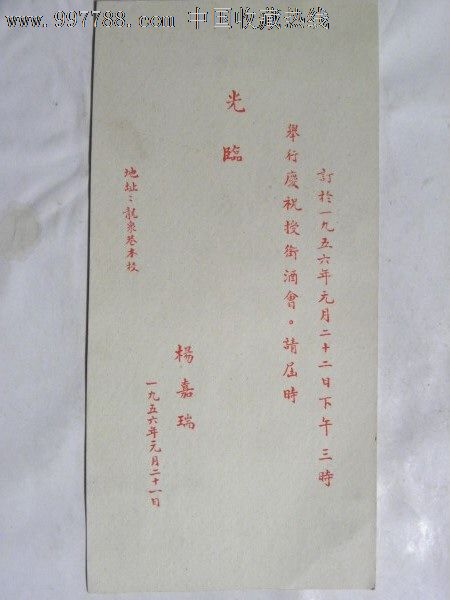 www.997788.com 中国收藏热线
訂於一九五六年元月二十二日下午三時
舉行慶祝授銜酒會。請屆時
光臨
楊嘉瑞
一九五六年元月二十一日
地址：龍泉巷本校